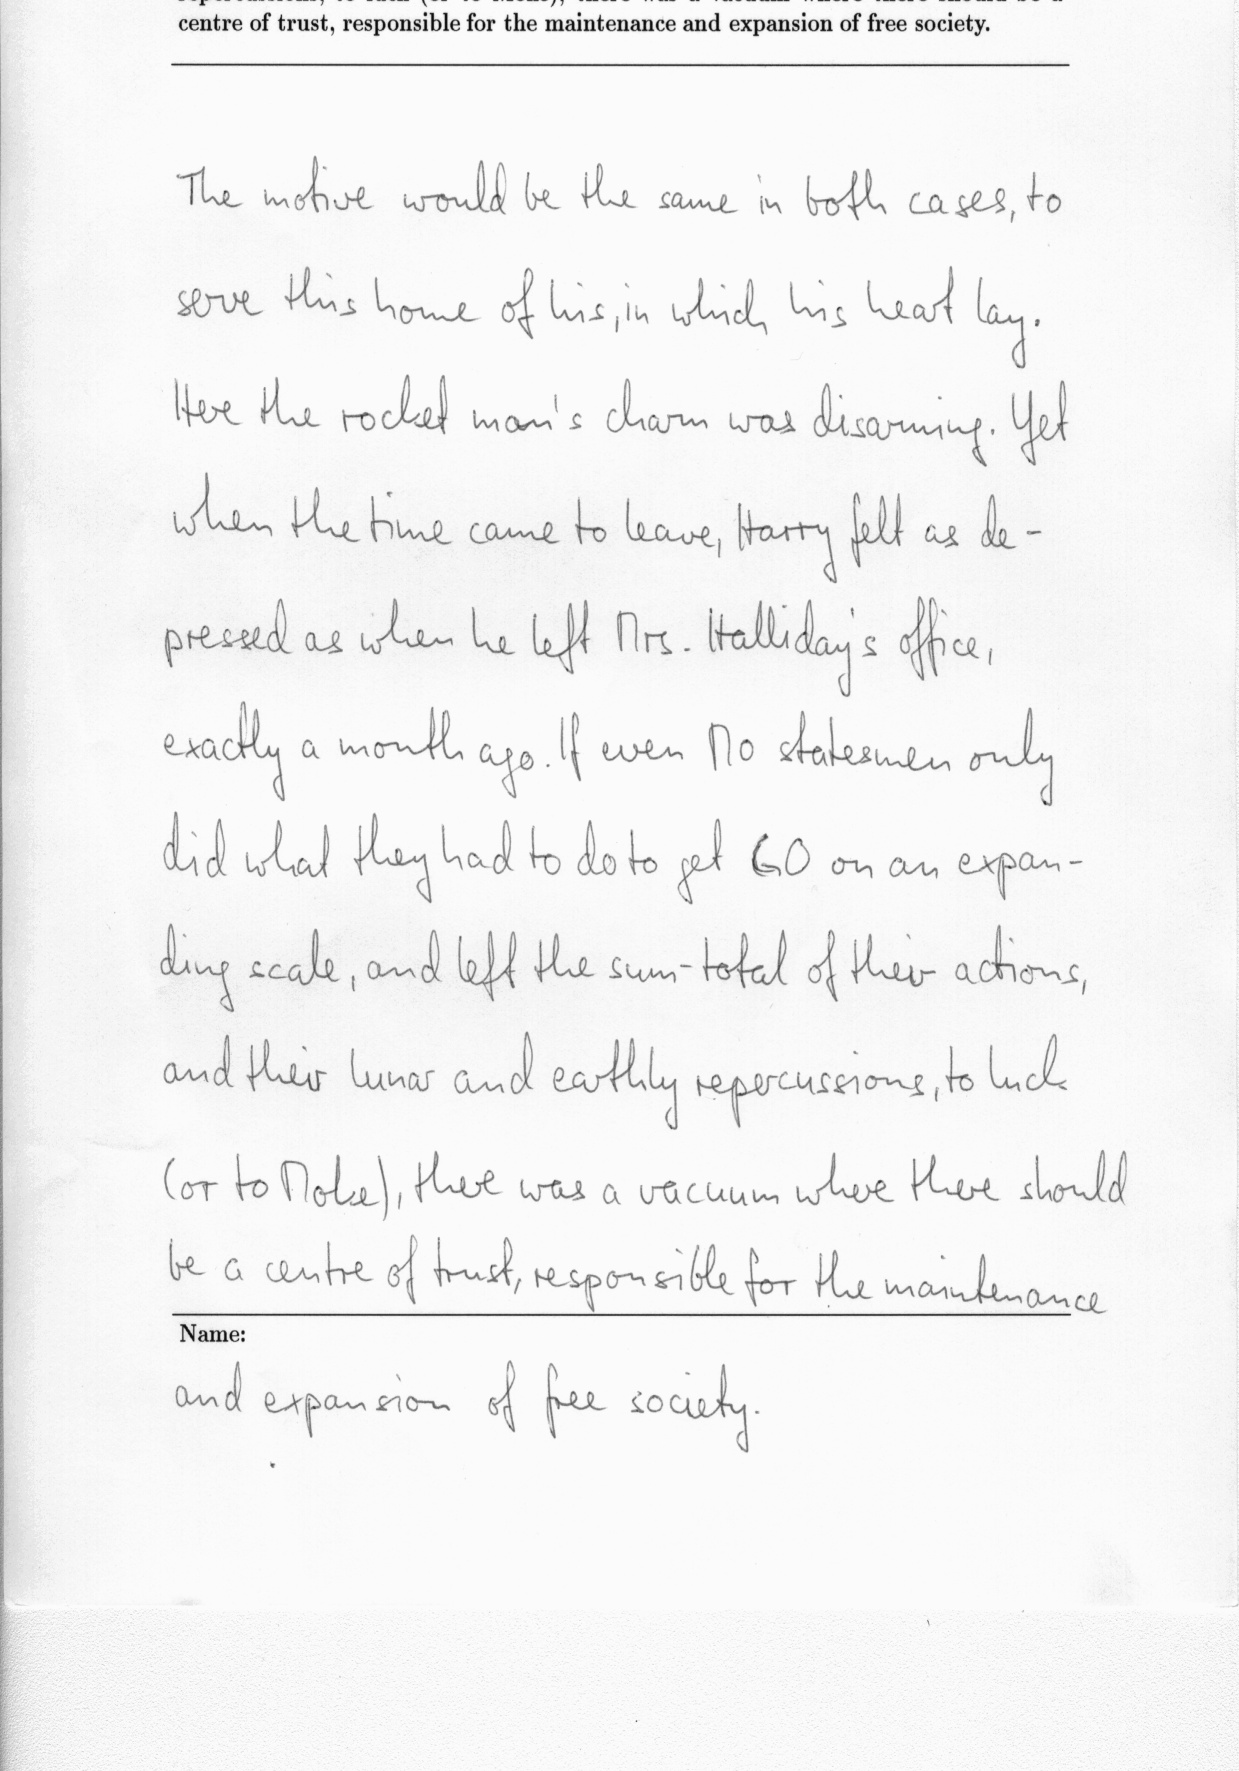 repercussions, to luck (or to Moke), there was a vacuum where there should be a
centre of trust, responsible for the maintenance and expansion of free society.
The motive would be the same in both cases, to
serve this home of his, in which his heart lay.
Here the rocket man's charm was disarming. Yet
when the time came to leave, Harry felt as de-
pressed as when he left Mrs. Halliday's office,
exactly a month ago. If even MO statesmen only
did what they had to do to get GO on an expan-
ding scale, and left the sum-total of their actions,
and their lunar and earthly repercussions, to luck
(or to Moke), there was a vacuum where there should
be a centre of trust, responsible for the maintenance
Name:
and expansion of free society.